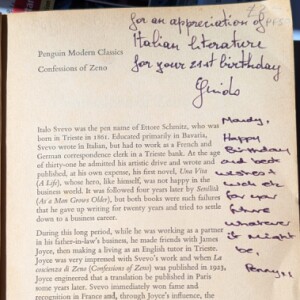 for an appreciation of
Italian literature
for your 21st birthday
Guido
Penguin Modern Classics
Confessions of Zeno
Italo Svevo was the pen name of Ettore Schmitz, who was
born in Trieste in 1861. Educated primarily in Bavaria,
Svevo wrote in Italian, but had to work as a French and
German correspondence clerk in a Trieste bank. At the age
of thirty-one he admitted his artistic drive and wrote and
published, at his own expense, his first novel, Una Vita
(A Life), whose hero, like himself, was not happy in the
business world. It was followed four years later by Senilità
(As a Man Grows Older), but both books were such failures
that he gave up writing for twenty years and tried to settle
down to a business career.
During this long period, while he was working as a partner
in his father-in-law's business, he made friends with James
Joyce, then making a living as an English tutor in Trieste.
Joyce was very impressed with Svevo's work and when La
coscienza di Zeno (Confessions of Zeno) was published in 1923,
Joyce engineered that a translation be published in Paris
some years later. Svevo immediately won fame and
recognition in France and, through Joyce's influence, the
Happy
Birthday
and best
wishes &
luck etc
for your
future
whatever
it might
be,
Penny